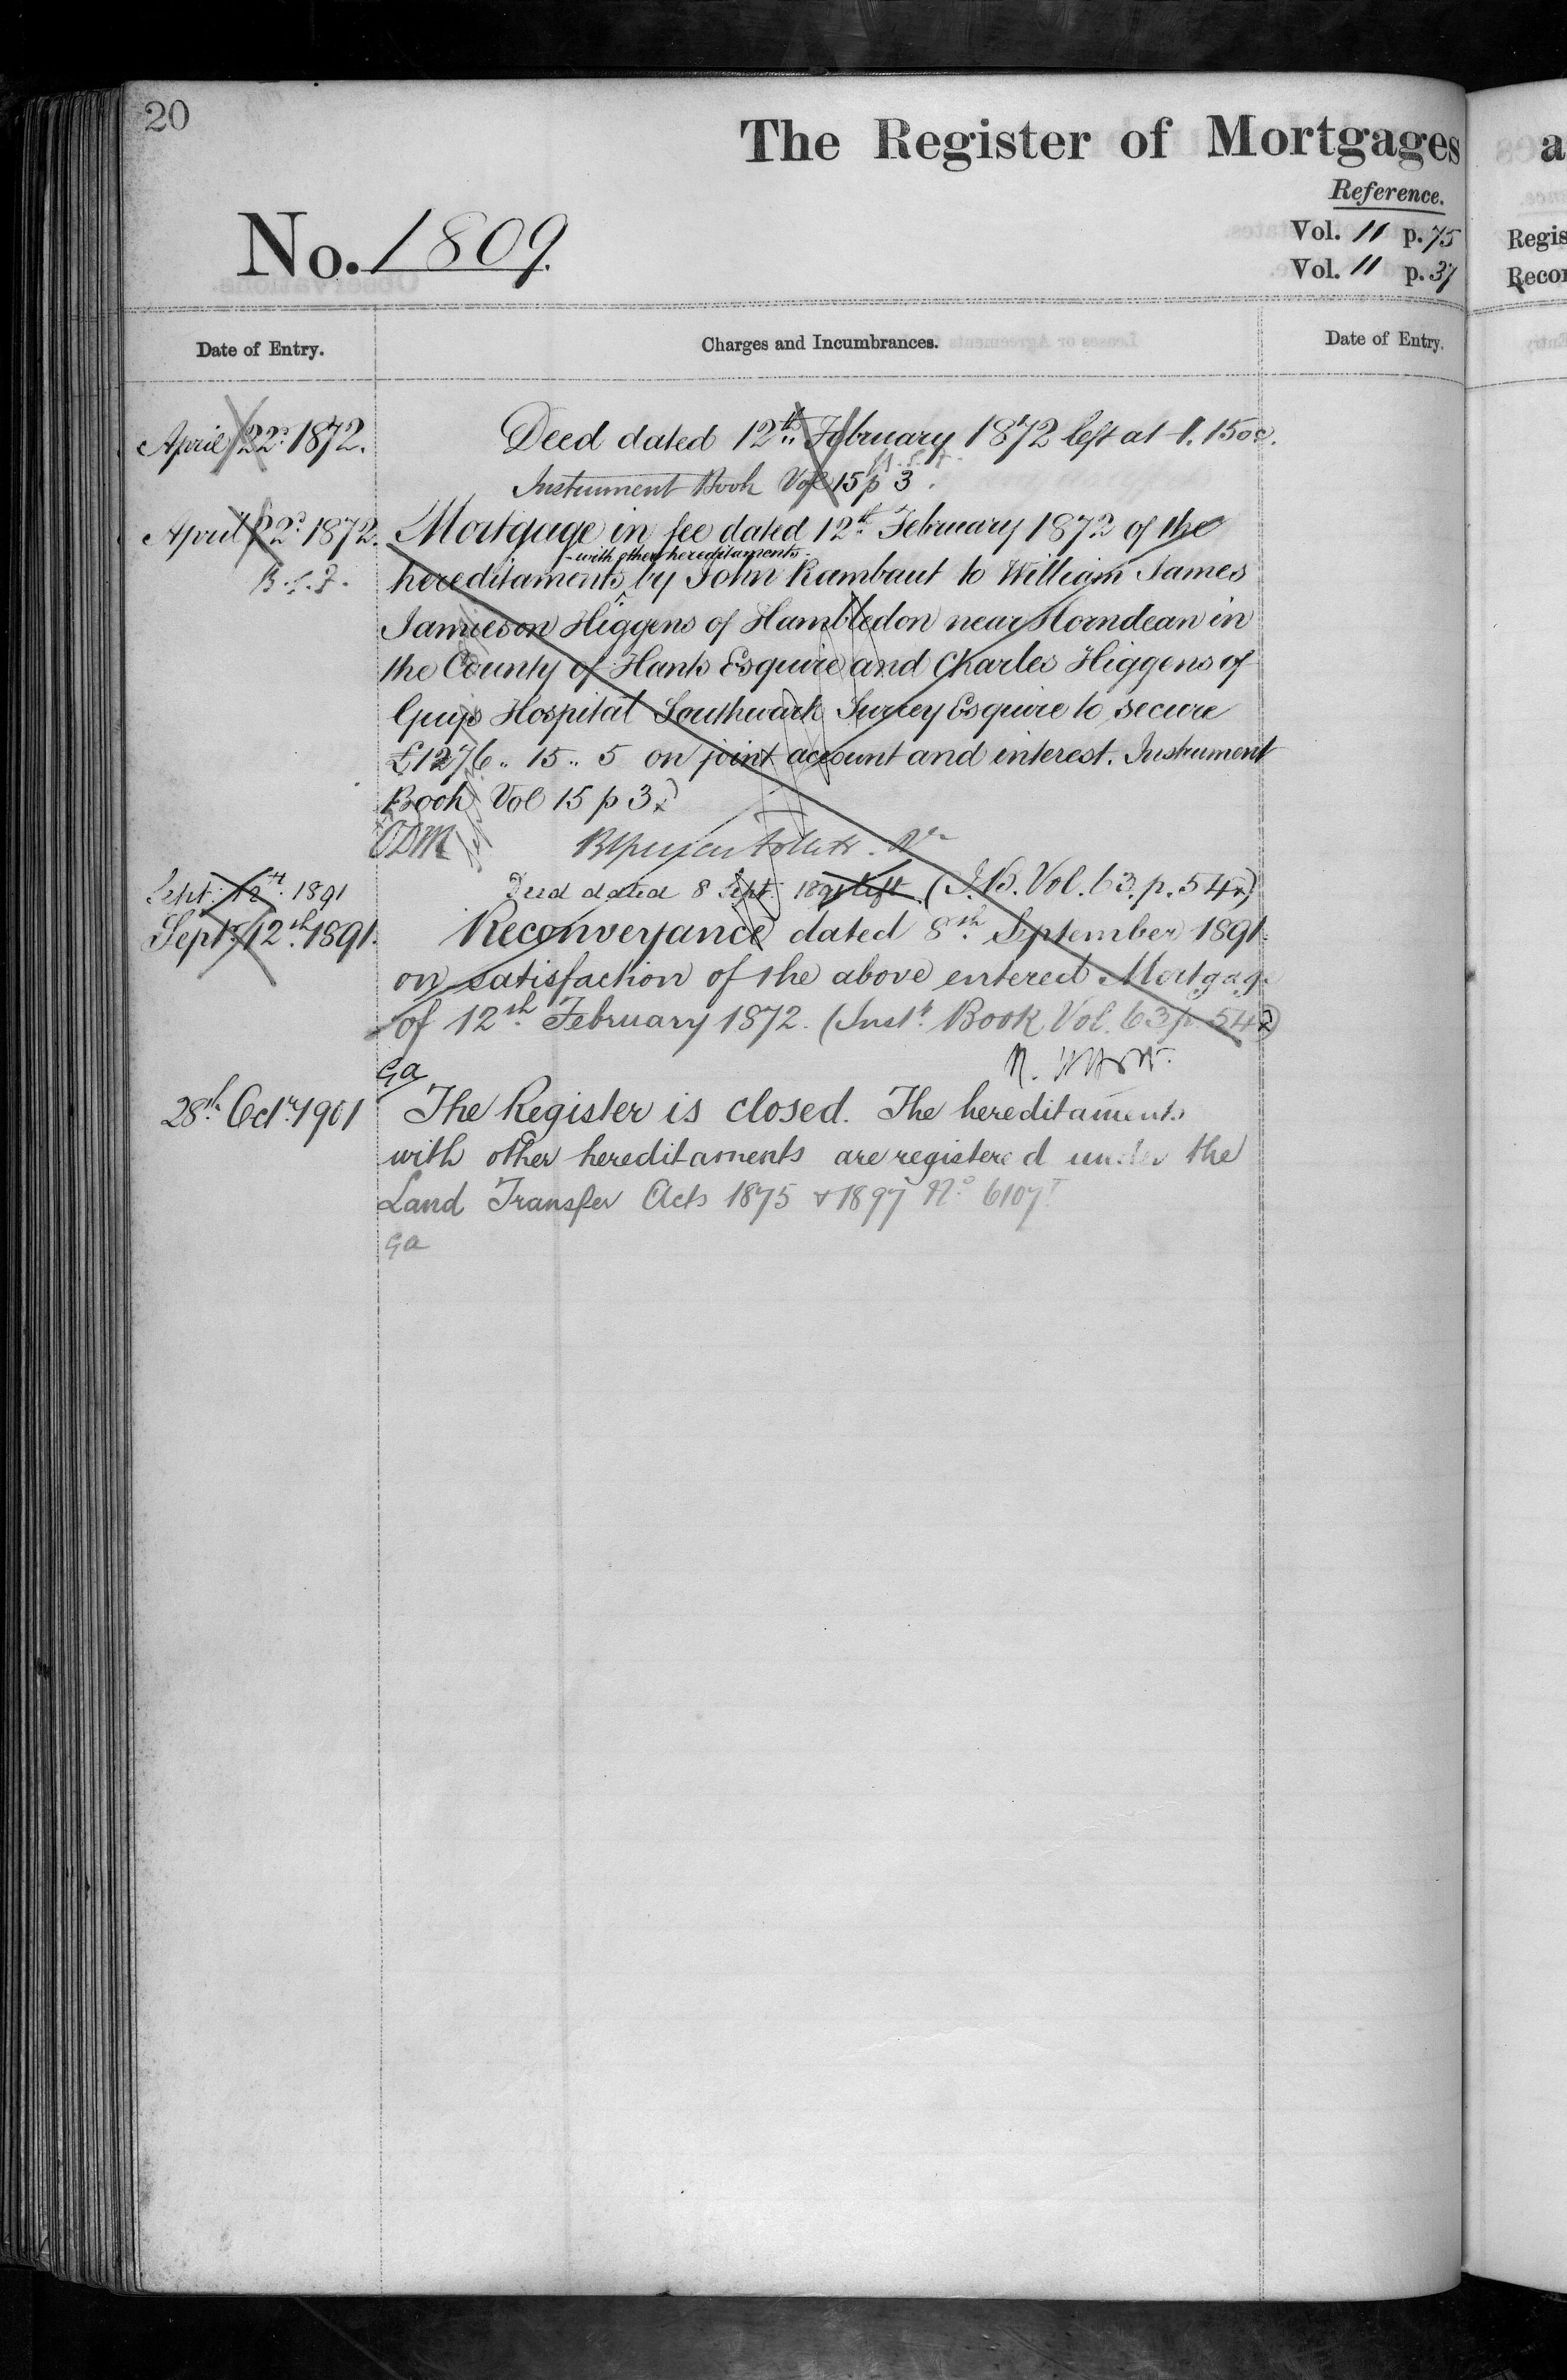 20
The Register of Mortgages
Reference.
No. 1809.
Vol. 11 p. 75
Vol. 11 p. 37
Regis
Recor
Date of Entry.
Charges and Incumbrances.
Date of Entry.
April 22d 1872.
Deed dated 12th February 1872 left at
Instrument Book Vol 15 p 3.
April 22d 1872.
Mortgage in fee dated 12th February 1872 of the
- with other hereditaments -
hereditaments by John Rambaut to William James
Jamieson Higgens of Hambledon near Horndean in
the County of Hants Esquire and Charles Higgens of
Guys Hospital Southwark Surrey Esquire to secure
£1276 .. 15 .. 5 on joint account and interest. Instrument
Book Vol 15 p 3.)
Sept. 12th 1891
Deed dated 8 Sept. 1891 left (I.B. Vol. 63. p. 54.)
Sept. 12th 1891.
Reconveyance dated 8th September 1891.
on satisfaction of the above entered Mortgage
of 12th February 1872. (Inst. Book Vol. 63 p. 54)
Ga
28th Octr. 1901
The Register is closed. The hereditaments
with other hereditaments are registered under the
Land Transfer Acts 1875 & 1897 No. 6107
Ga